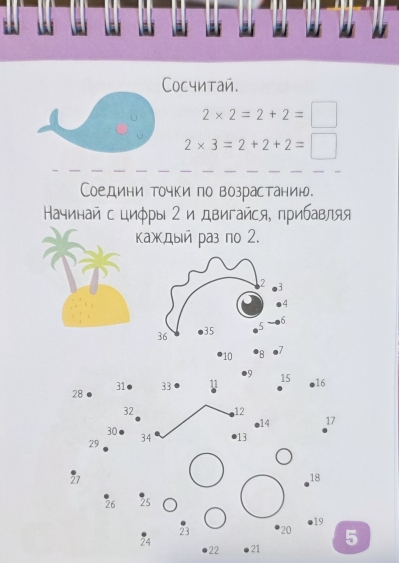 Сосчитай.
2 × 2 = 2 + 2 =
2 × 3 = 2 + 2 + 2 =
Соедини точки по возрастанию.
Начинай с цифры 2 и двигайся, прибавляя
каждый раз по 2.
2 3
4
5 6
36 35
10 8 7
9
28 31 33 11 15 16
32 12
30 34 13 14 17
29
27
26 25 18
24 23 20 19
22 21
5